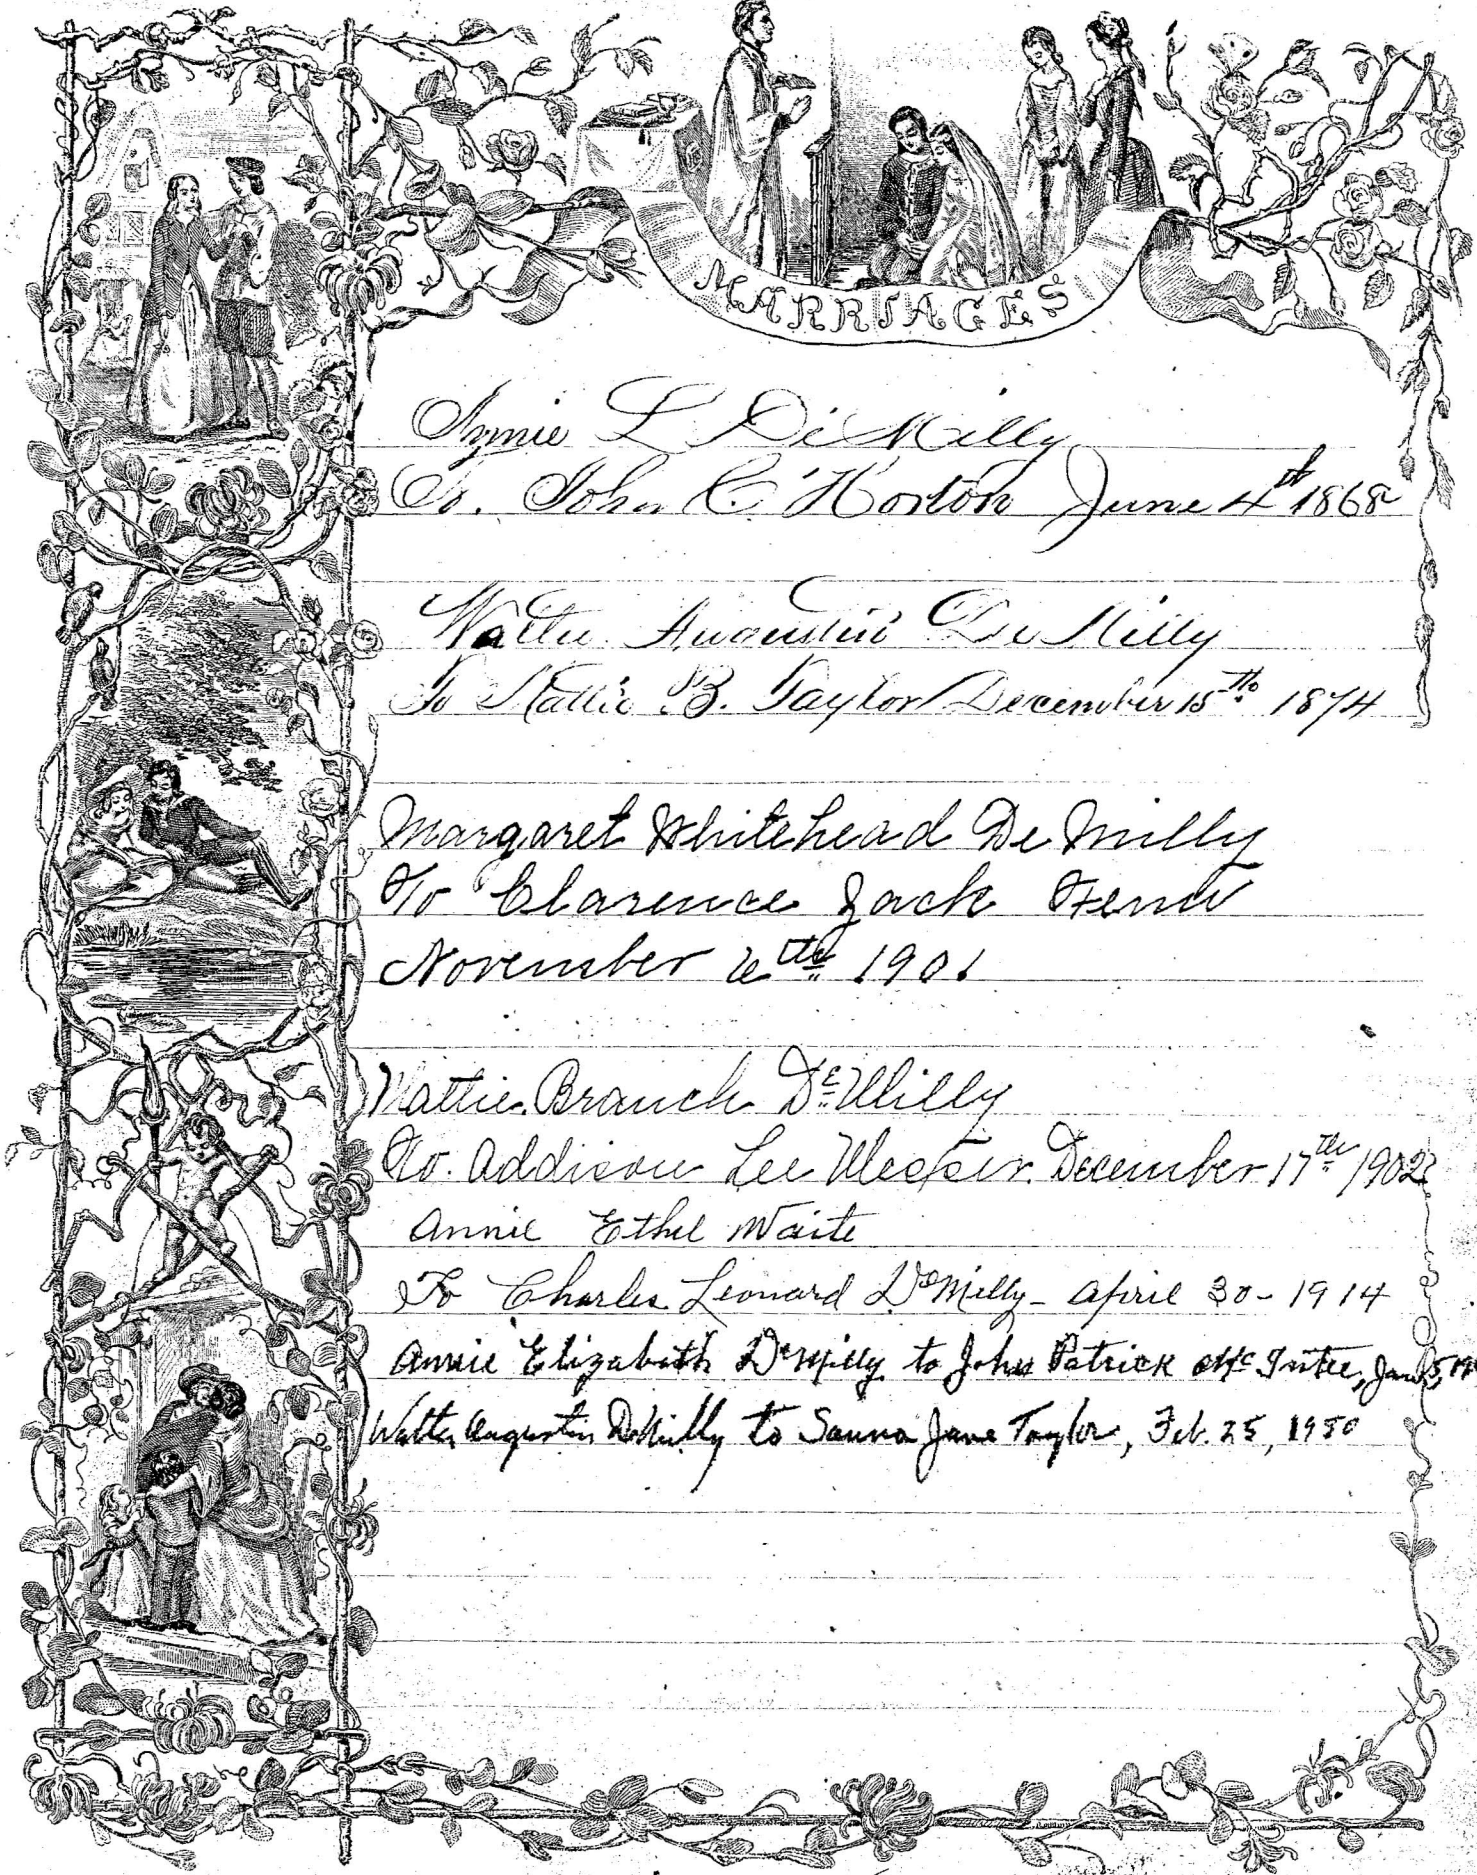 MARRIAGES
Annie L De Milly
To. John C. Horton June 4th 1868
Walter Augustin De Milly
To Mattie B. Taylor December 15th 1874
Margaret Whitehead De Milly
To Clarence Jack
November 6th 1901
Mattie Branch De Milly
To. Addison Lee December 17th 1902
Annie Ethel Waite
To Charles Leonard DeMilly - April 30 - 1914
Annie Elizabeth DeMilly to John Patrick Jan 5,
Walter Augustin DeMilly to Sauna Jane Taylor, Feb. 25, 1950